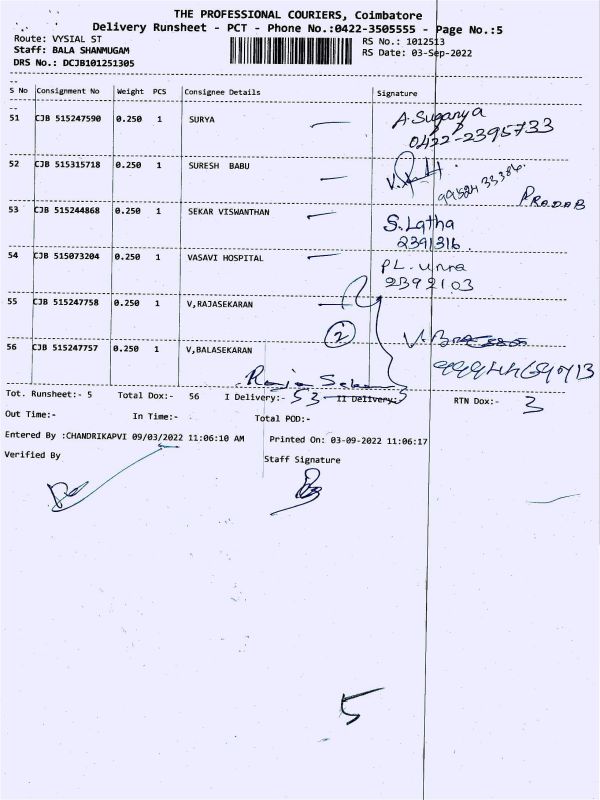 THE PROFESSIONAL COURIERS, Coimbatore
Delivery Runsheet - PCT - Phone No.:0422-3505555 - Page No.:5
Route: VYSIAL ST
RS No.: 1012513
Staff: BALA SHANMUGAM
RS Date: 03-Sep-2022
DRS No.: DCJB101251305
S No Consignment No Weight PCS Consignee Details Signature
51 CJB 515247590 0.250 1 SURYA A. Suganya
0422-2395733
52 CJB 515315718 0.250 1 SURESH BABU
53 CJB 515244868 0.250 1 SEKAR VISWANTHAN S. Latha
2391316
54 CJB 515073204 0.250 1 VASAVI HOSPITAL PL.
2392103
55 CJB 515247758 0.250 1 V,RAJASEKARAN
2
56 CJB 515247757 0.250 1 V,BALASEKARAN
Tot. Runsheet:- 5 Total Dox:- 56 I Delivery:- 53 II Delivery:- RTN Dox:- 3
Out Time:- In Time:- Total POD:-
Entered By :CHANDRIKAPVI 09/03/2022 11:06:10 AM Printed On: 03-09-2022 11:06:17
Verified By Staff Signature
5